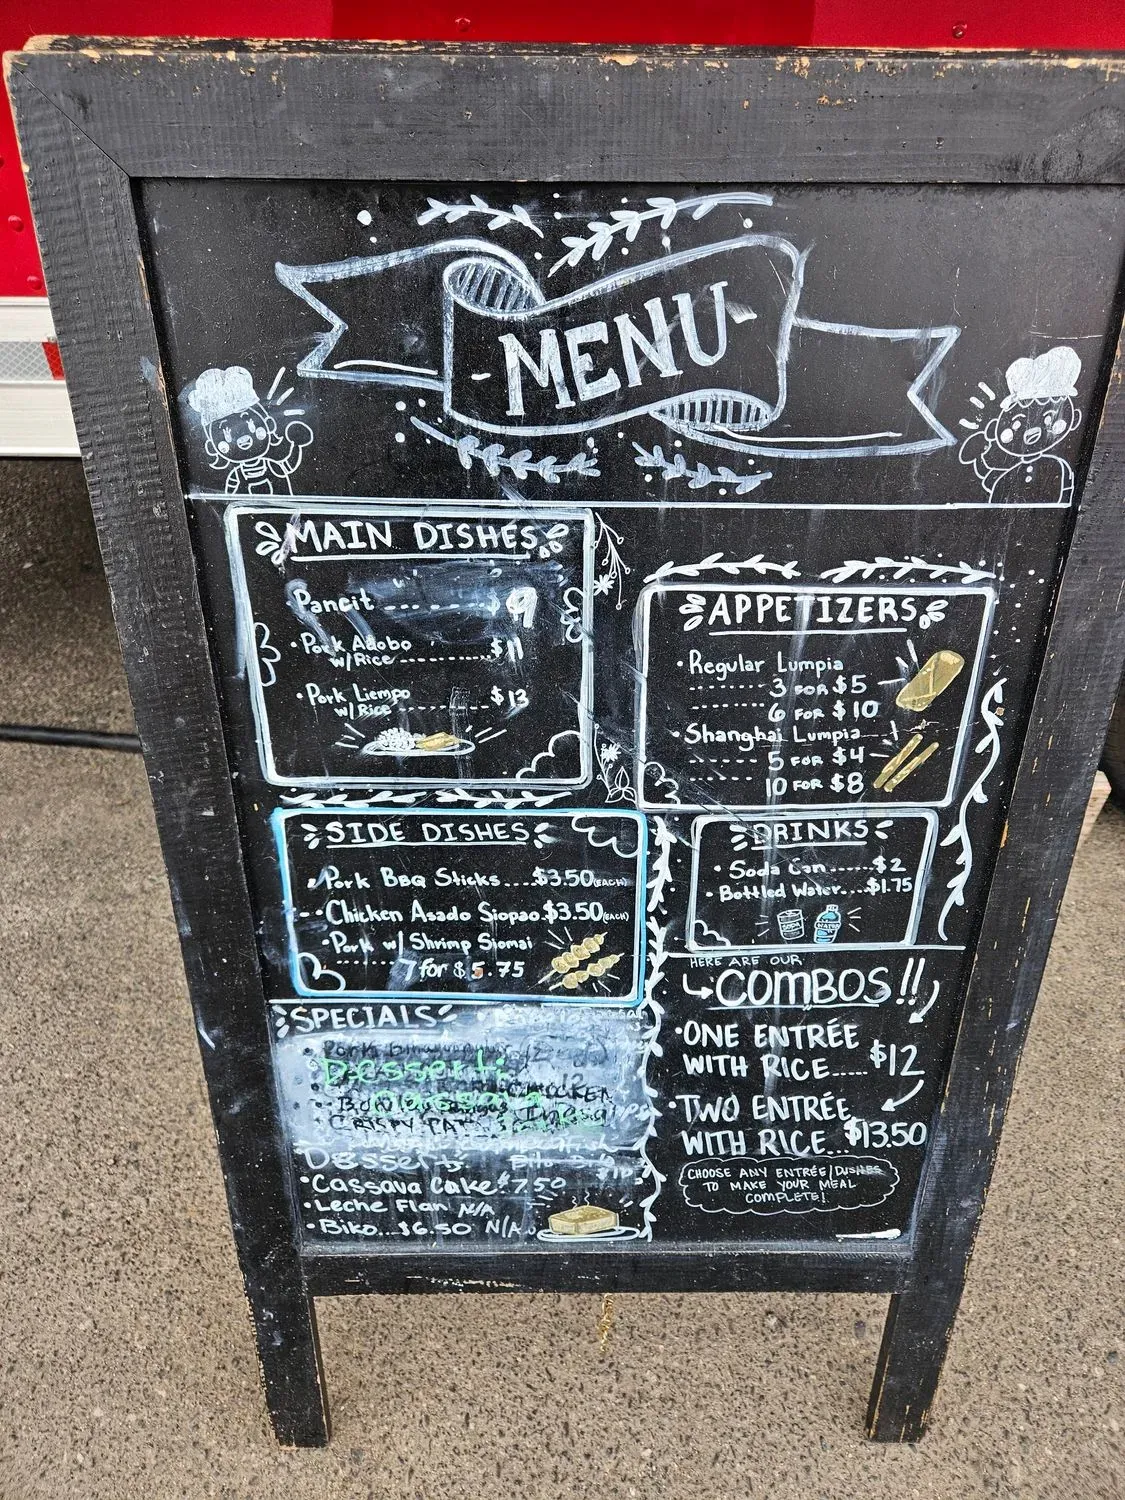 -MENU-
MAIN DISHES
Pancit ----- $9
• Pork Adobo
w/Rice ............ $11
• Pork Liempo
w/Rice ............ $13
APPETIZERS
• Regular Lumpia
------- 3 FOR $5
------- 6 FOR $10
• Shanghai Lumpia
------ 5 FOR $4
------ 10 FOR $8
SIDE DISHES
• Pork BBQ Sticks....$3.50(EACH)
• Chicken Asado Siopao.$3.50(EACH)
• Pork w/ Shrimp Siomai
7 for $5.75
DRINKS
• Soda Can......$2
• Bottled Water....$1.75
SODA
WATER
HERE ARE OUR
COMBOS!!
• ONE ENTRÉE
WITH RICE..... $12
• TWO ENTRÉE
WITH RICE... $13.50
CHOOSE ANY ENTRÉE/DISHES
TO MAKE YOUR MEAL
COMPLETE!
SPECIALS
Pork
Dessert:
CRISPY PATA
Desserts
• Cassava Cake $7.50
• Leche Flan N/A
• Biko...$6.50 N/A